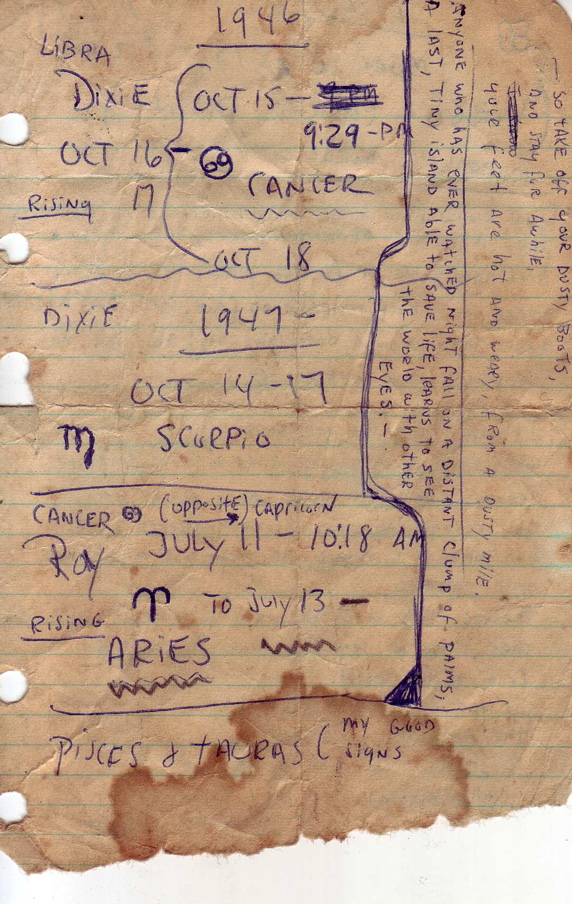 1946
LiBRA
DixiE
OCT 16
Rising 17
OCT 15 —
9:29 - PM
♋ CANCER
OCT 18
DixiE 1947 -
OCT 14 -17
♏ SCORPiO
CANCER ♋ (OPPOSiTE) CAPRiCORN
Roy JULY 11 - 10:18 AM
♈ To July 13 —
RiSiNG
ARiES
PiSCES & TAURAS ( MY GOOD
SigNS
— SO TAKE OFF yOUR DUSTY BOOTS,
AND STAY FUR AwhiLE,
youe feet are hot AND weary, from A Dusty mile.
ANYONE who has ever watched night fall on A Distant clump of palms,
A LAST, Tiny island Able to SAVE LIFE, learns to see
the world with other
Eyes. -